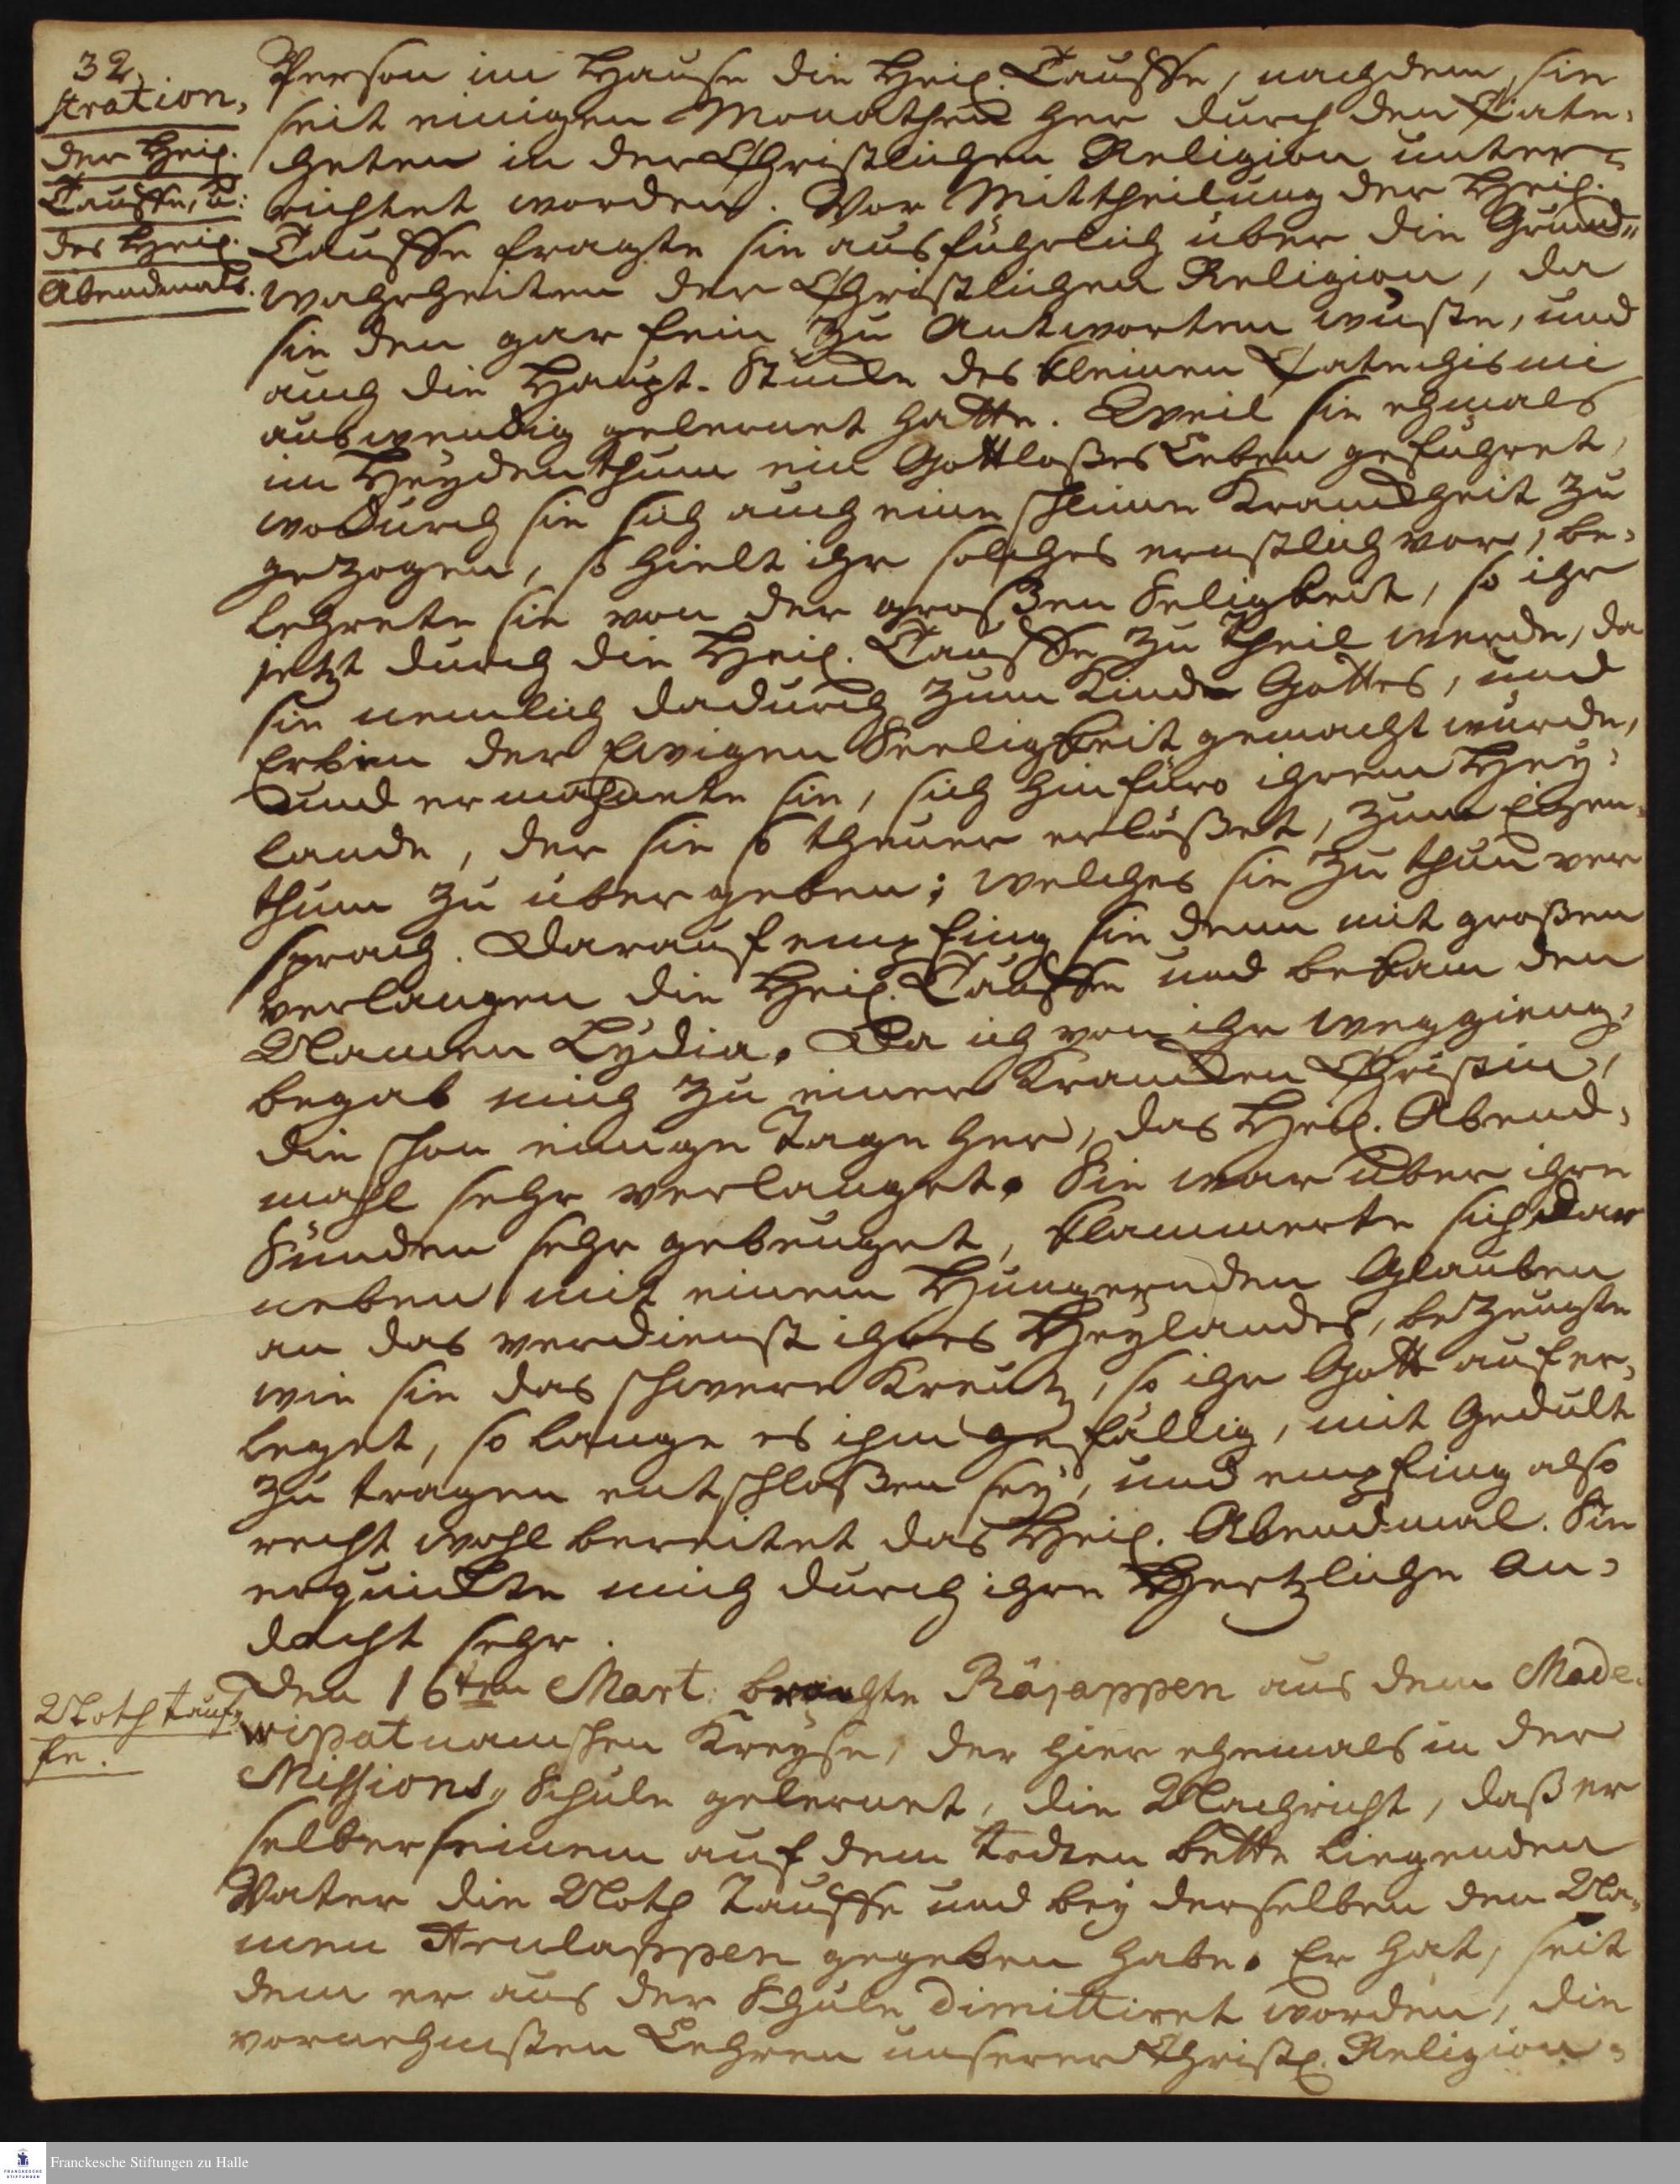 32
stration,
der Heil.
Tauffe, u:
des Heil.
Abendmals.
Person im Hause die Heil. Tauffe, nachdem sie
seit einigen Monathen her durch den Cate-
cheten in der Christlichen Religion unter-
richtet worden. Vor Mittheilung der Heil.
Tauffe fragte sie ausführlich über die Grund-
wahrheiten der Christlichen Religion, da
sie den gar fein zu Antworten wuste, und
auch die Haupt-Stücke des kleinen Catechismi
auswendig gelernet hatte. Weil sie ehmals
im Heydenthum ein Gottloßes Leben geführet,
wodurch sie sich auch eine schlime Kranckheit zu
gezogen, so hielt ihr solches ernstlich vor, be-
lehrete sie von der großen Seligkeit, so ihr
jetzt durch die Heil. Tauffe zu theil werde, da
sie nemlich dadurch zum Kinde Gottes, und
Erbin der Ewigen Seeligkeit gemacht würde,
und ermahnete sie, sich hinfüro ihrem Hey-
lande, der sie so theuer erlößet, zum Eigen-
thum zu übergeben; welches sie zu thun ver
sprach. Darauf empfing sie denn mit großen
verlangen die Heil. Tauffe und bekam den
Namen Lydia. Da ich von ihr weggieng,
begab mich zu einer Krancken Christin,
die schon einige Tage her, das Heil. Abend-
mahl sehr verlanget. Sie war über ihre
Sünden sehr gebeuget, klammerte sich dar
neben mit einem Hungernden Glauben
an das verdienst ihres Heylandes, bezeugte
wie sie das schwere Kreutz, so ihr Gott aufer-
leget, so lange es ihm gefällig, mit Gedult
zu tragen entschloßen sey, und empfing also
recht wohl bereitet das Heil. Abendmal. Sie
erquickte mich durch ihre Hertzliche An-
dacht sehr.
Nothtauf-
fe.
Den 16ten Mart: brachte Räjappen aus dem Made-
wipatnamschen Kreyse, der hier ehemals in der
Missions-Schule gelernet, die Nachricht, daß er
selber seinem auf dem todten bette liegenden
Vater die Noth Tauffe und bey derselben den Na-
men Arulappen gegeben habe. Er hat, seit
dem er aus der Schule dimittiret worden, die
vornehmsten Lehren unserer Christl. Religion-
Franckesche Stiftungen zu Halle
FRANCKESCHE
STIFTUNGEN